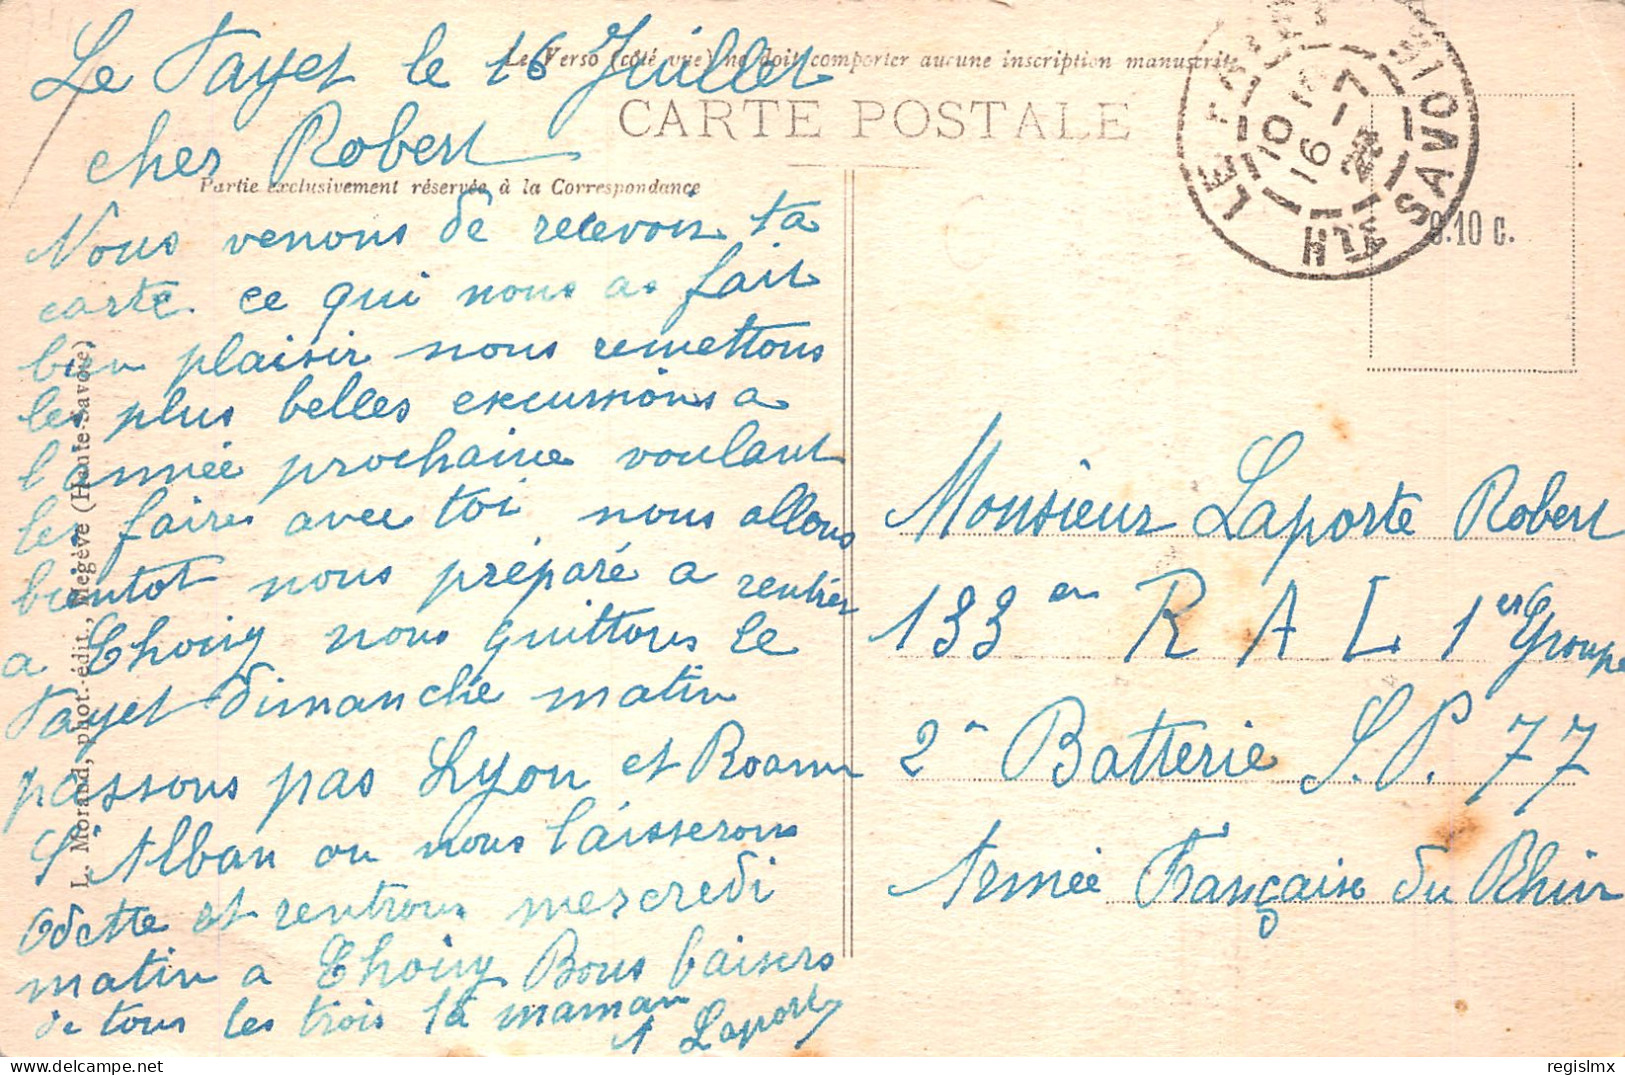 Le Verso (côté vue) ne doit comporter aucune inscription manuscrite
CARTE POSTALE
Partie exclusivement réservée à la Correspondance
Le Fayet le 16 Juillet
cher Robert
Nous venons de recevoir ta
carte ce qui nous as fait
bien plaisir nous remettons
les plus belles excursions a
l'année prochaine voulant
les faires avec toi nous allons
bientot nous préparé a rentrer
a Choisy nous quittons le
Fayet dimanche matin
passons pas Lyon et Roanne
St Alban ou nous laisserons
Odette et rentrons mercredi
matin a Choisy Bons baisers
de tous les trois ta maman
A Laporte
L. Morand, phot.-édit., Megève (Haute-Savoie)
LE FAYET
10 16-7
HTE SAVOIE
0.10 c.
Monsieur Laporte Robert
133 em R A L 1er Groupe
2e Batterie S.P. 77
Armée Française du Rhin
regislmx